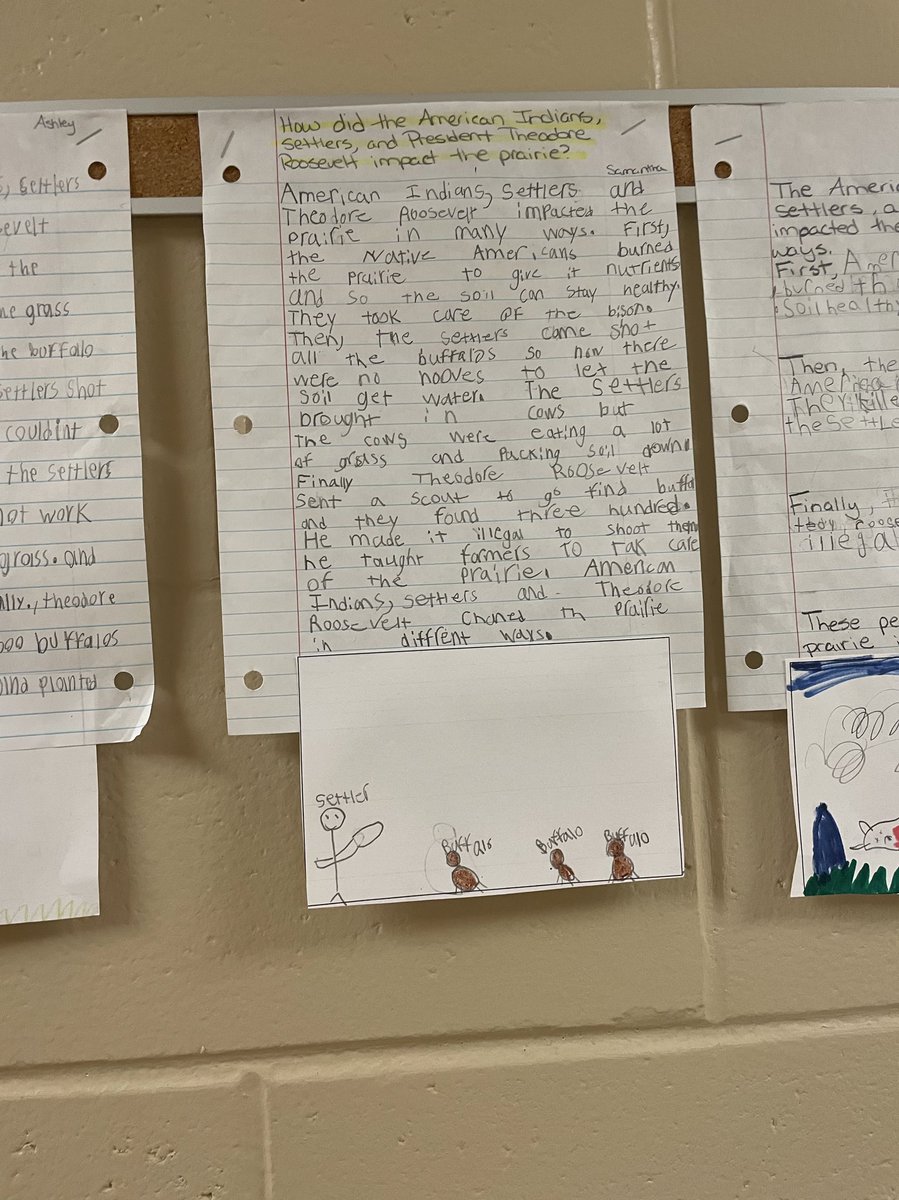 Ashley
s, settlers
evelt
the
he grass
he buffalo
settlers shot
couldint
the settlers
not work
grass. and
ally., theodore
300 buffalos
planted
How did the American Indians,
settlers, and President Theodore
Roosevelt impact the prairie?
Samantha
American Indians, Settlers and
Theodore Roosevelt impacted the
prairie in many ways. First,
the Native Americans burned
the prairie to give it nutrients
and so the soil can stay healthy.
They took care of the bison.
Then, the settlers came shot
all the buffalos so now there
were no hooves to let the
soil get water. The settlers
brought in cows but
the cows were eating a lot
of grass and packing soil down.
Finally Theodore Roosevelt
sent a scout to go find buffalo
and they found three hundred.
He made it illegal to shoot them
he taught farmers to tak care
of the prairie. American
Indians, settlers and Theodore
Roosevelt chaned th prairie
in diffrent ways.
settler
Buffalo
Buffalo
Buffalo
The Americ
settlers, a
impacted the
ways.
First, Amer
burned th
soil healthy
Then, the
America
They kille
the settle
Finally,
illegal
These pe
prairie i